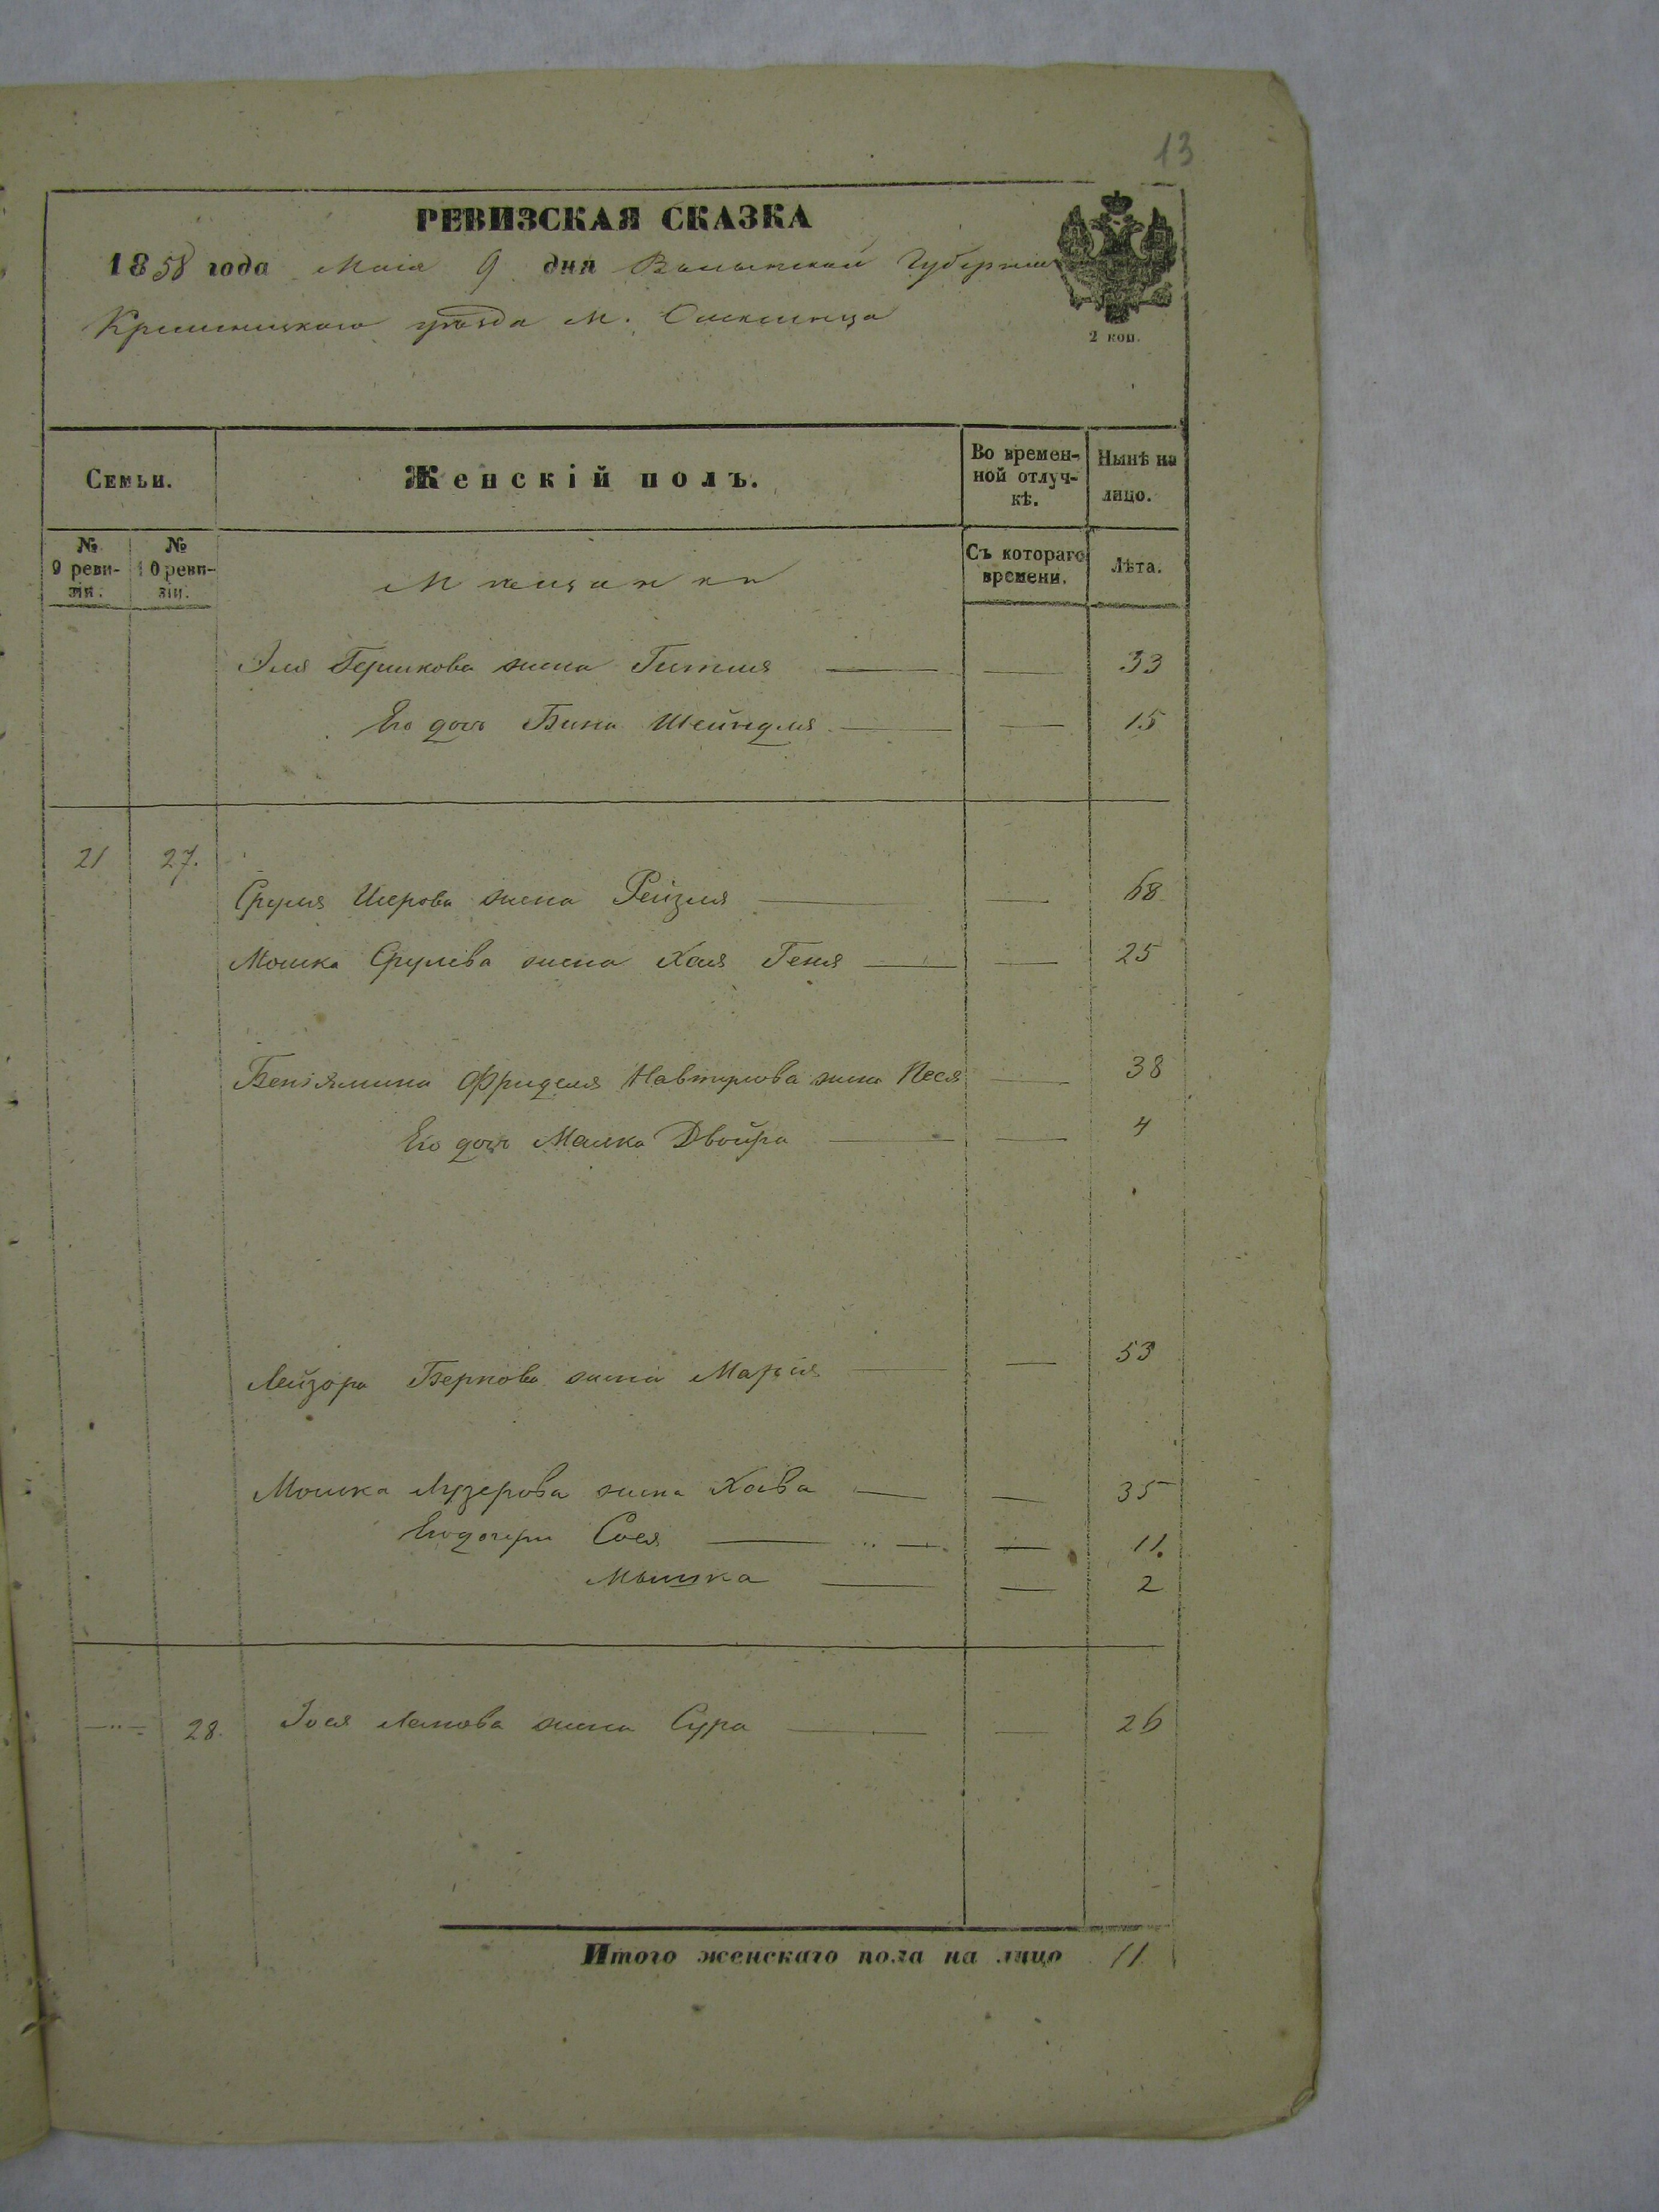 13
РЕВИЗСКАЯ СКАЗКА
1858 года Маія 9 дня Волынской Губерніи
Кременецкаго уѣзда м. Олексинца
2 коп.
Семьи.
Женскій полъ.
Во времен-
ной отлуч-
кѣ.
Нынѣ на
лицо.
№
9 реви-
зіи.
№
10 реви-
зіи.
Мѣщанки
Съ котораго
времени.
Лѣта.
Эля Гершкова жена Гитля — — 33
Его дочь Бина Шейндля — — 15
21 27.
Сруля Шерова жена Рейзля — — 68
Мошка Срулева жена Хая Геня — — 25
Беніямина Фриделя Навтулова жена Песя — 38
Его дочь Малка Двойра — — 4
Лейзора Беркова жена Марія — — 53
Мошка Лузерова жена Хава — — 35
Его дочери Сося — — 11.
Мышка — — 2
28. Іося жена Сура — — 26
Итого женскаго пола на лицо 11